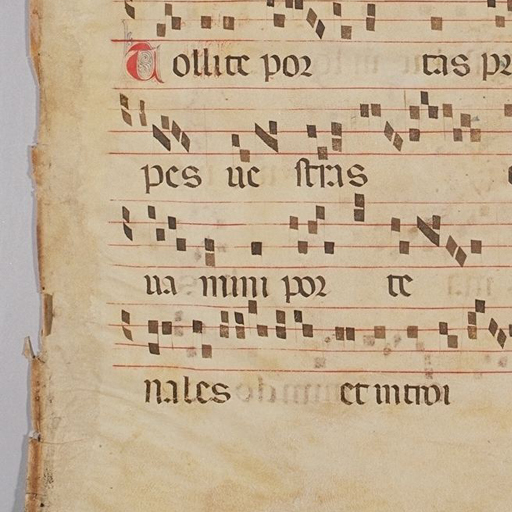 Tollite por tas pr
pes ue stras
ua mini por te
nales et introi